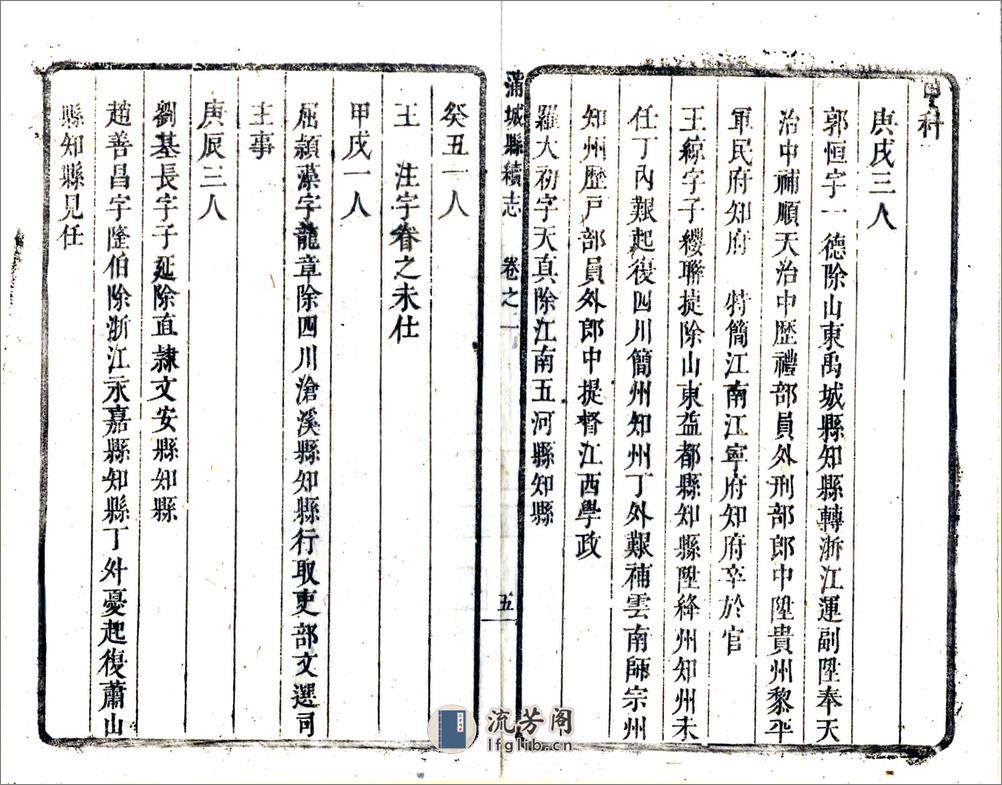 科
庚戌三人
郭恒字一德除山東禹城縣知縣轉浙江運副陞奉天
治中補順天治中歷禮部員外刑部郎中陞貴州黎平
軍民府知府　特簡江南江寧府知府卒於官
王綜字子纓聯捷除山東益都縣知縣陞絳州知州未
任丁內艱起復四川簡州知州丁外艱補雲南師宗州
知州歷戶部員外郎中提督江西學政
羅大初字天真除江南五河縣知縣
蒲城縣續志　卷之一　五
癸丑一人
王　注字眷之未仕
甲戌一人
屈穎藻字龍章除四川滄溪縣知縣行取吏部文選司
主事
庚辰三人
劉基長字子延除直隸文安縣知縣
趙善昌字隆伯除浙江永嘉縣知縣丁外憂起復蕭山
縣知縣見任
流芳阁
lfglib.cn